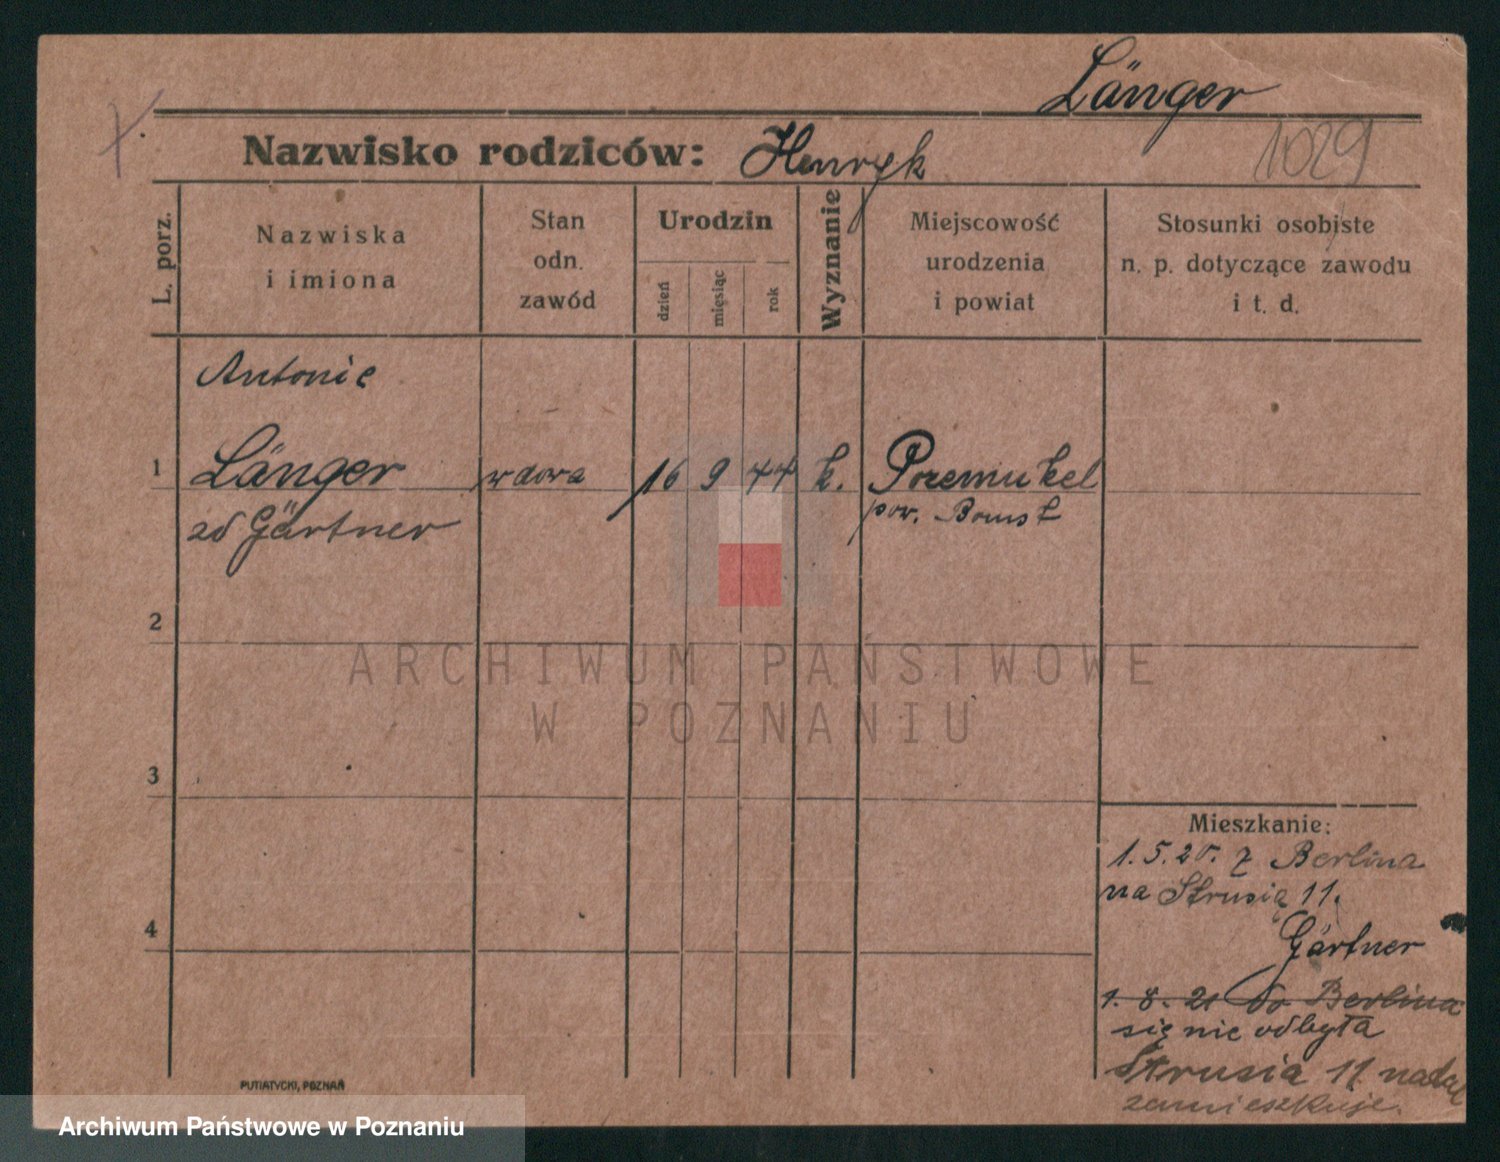 Länger
Nazwisko rodziców: Henryk
1029
L. porz.
Nazwiska
i imiona
Stan
odn.
zawód
Urodzin
dzień
miesiąc
rok
Wyznanie
Miejscowość
urodzenia
i powiat
Stosunki osobiste
n. p. dotyczące zawodu
i t. d.
Antonie
1 Länger wdowa 16 9 44 k. Prremukel
zd Gärtner pow. Bomst
2
3
4
ARCHIWUM PAŃSTWOWE
W POZNANIU
Mieszkanie:
1. 5. 20. z Berlina
na Strusią 11.
Gärtner
1. 8. 21 do Berlina
się nie odbyła
Strusia 11 nadal
zamieszkuje.
PUTIATYCKI, POZNAŃ
Archiwum Państwowe w Poznaniu